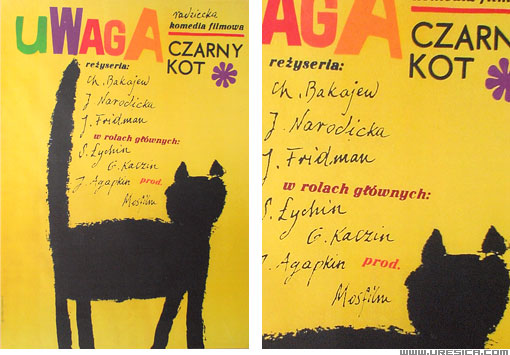 radziecka
komedia filmowa
UWAGA
CZARNY
KOT
reżyseria:
Ch. Bakajew
J. Narodicka
J. Fridman
w rolach głównych:
S. Łychin
G. Kaczin
J. Agapkin prod.
Mosfilm
komedia film
AGA
CZARN
KOT
reżyseria:
Ch. Bakajew
J. Narodicka
J. Fridman
w rolach głównych:
S. Łychin
G. Kaczin
J. Agapkin prod.
Mosfilm
WWW.URESICA.COM